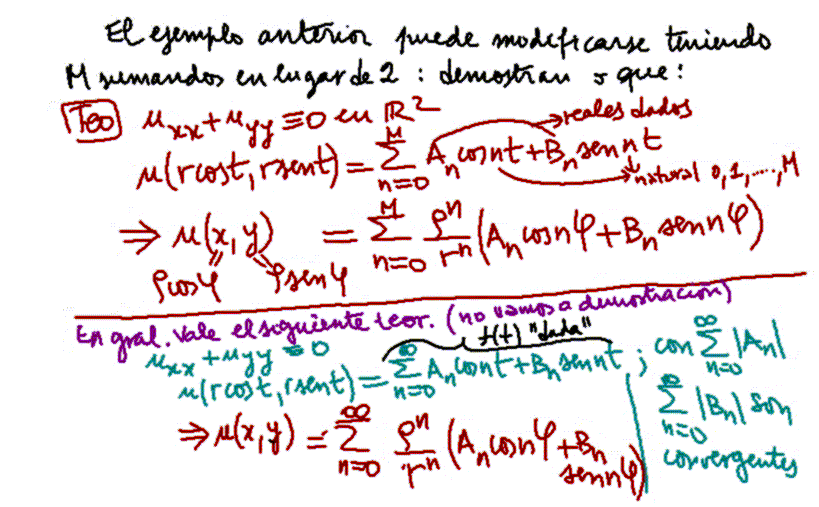 El ejemplo anterior puede modificarse teniendo
M sumandos en lugar de 2 : demostrar que:
Teo u_xx + u_yy ≡ 0 en R² → reales dados
u(r cost, r sent) = Σ_{n=0}^{M} A_n cos nt + B_n sen nt → natural 0, 1, ..., M
⇒ u(x, y) = Σ_{n=0}^{M} ρⁿ/rⁿ (A_n cos nφ + B_n sen nφ)
ρcosφ ρsenφ
En gral. vale el siguiente teor. (no vamos a demostración)
f(t) "dada"
u_xx + u_yy ≡ 0
u(r cost, r sent) = Σ_{n=0}^{∞} A_n cos nt + B_n sen nt ; con Σ_{n=0}^{∞} |A_n|
Σ_{n=0}^{∞} |B_n| son
convergentes
⇒ u(x, y) = Σ_{n=0}^{∞} ρⁿ/rⁿ (A_n cos nφ + B_n
sen nφ)